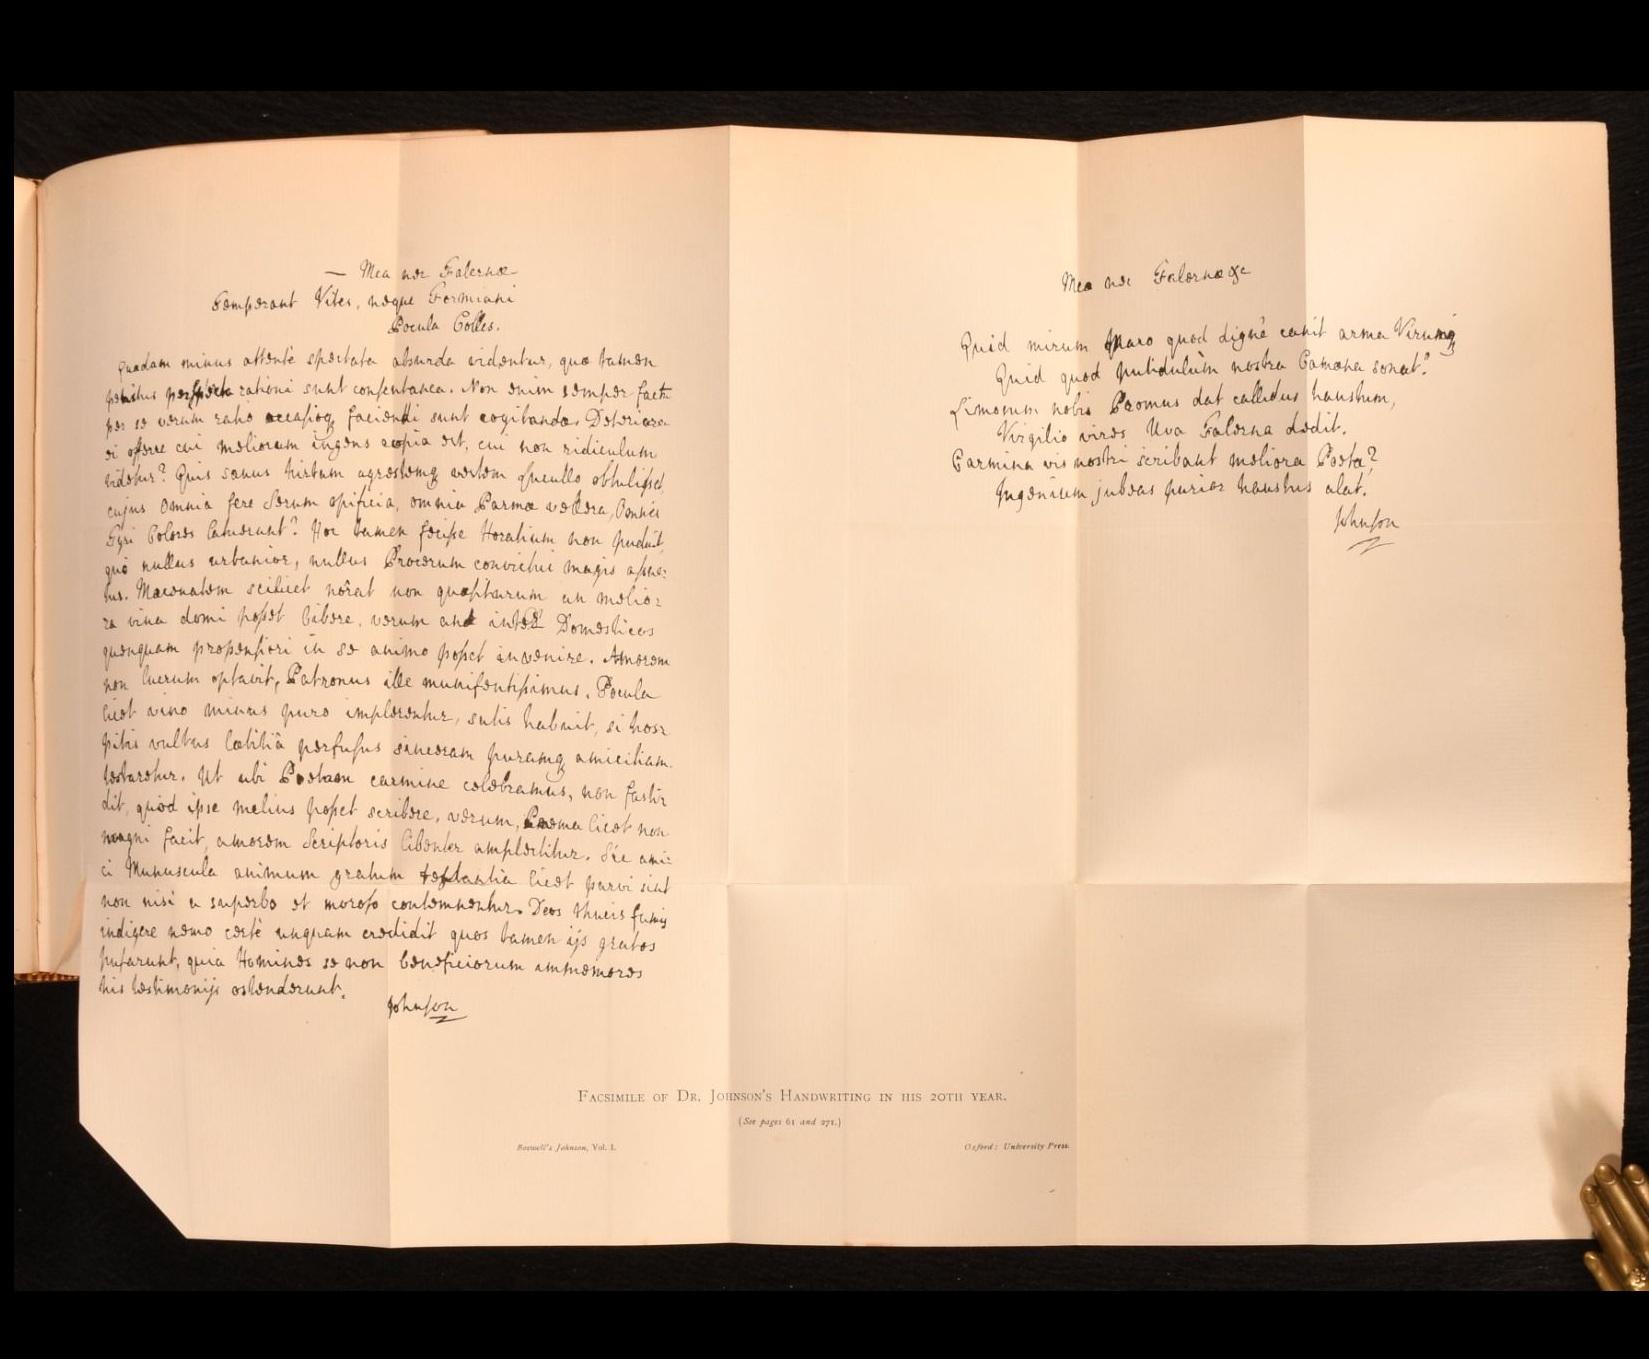 — Mea nec Falernæ
Temperant Vites, neque Formiani
Pocula Colles.
Quædam minus attentè spectata absurda videntur, quæ tamen
penitus perspecta rationi sunt consentanea. Non enim semper facta
per se verum ratio occasioq faciendi sunt cogitanda. Deteriora
ei offerre cui meliorum ingens copia est, cui non ridiculum
videtur? Quis sanus hirtum agrestemq vestem Lucullo obtulisset,
cujus omnia fere Serum opificia, omnia Parmæ vellera, omnes
Tyri Colores latuerunt? Hoc tamen fecisse Horatium non puduit,
quo nullus urbanior, nullus Procerum convictui magis assue-
tus. Mæcenatem scilicet nôrat non quæsiturum an melio-
ra vina domi posset bibere, verum an inter Domesticos
quenquam propensiori in se animo posset invenire. Amorem
non lucrum optavit, Patronus ille munificentissimus. Pocula
licet vino minus puro implerentur, satis habuit, si hos-
pitis vultus lætitiâ perfusus sinceram puramq amicitiam
testaretur. Ut ubi Poetam carmine celebramus, non fasti-
dit, quòd ipse melius posset scribere, verum, Poema licet non
magni facit, amorem Scriptoris libenter amplectitur. Sic ami-
ci Munuscula animum gratum testantia licet parvi sint
non nisi a superbo et moroso contemnentur. Deos thuris fumis
indigere nemo certè unquam credidit quos tamen ijs gratos
putarunt, quia Homines se non beneficiorum immemores
his testimonijs ostenderunt.
Johnson
Mea nec Falernæ &c
Quid mirum Maro quod dignè canit arma Virumq
Quid quod putidulùm nostra Camœna sonat?
Limosum nobis Promus dat callidus haustum,
Virgilio vires Uva Falerna dedit.
Carmina vis nostri scribant meliora Poetæ?
Ingenium jubeas purior haustus alat.
Johnson
FACSIMILE OF DR. JOHNSON'S HANDWRITING IN HIS 20TH YEAR.
(See pages 61 and 271.)
Boswell's Johnson, Vol. I.
Oxford: University Press.